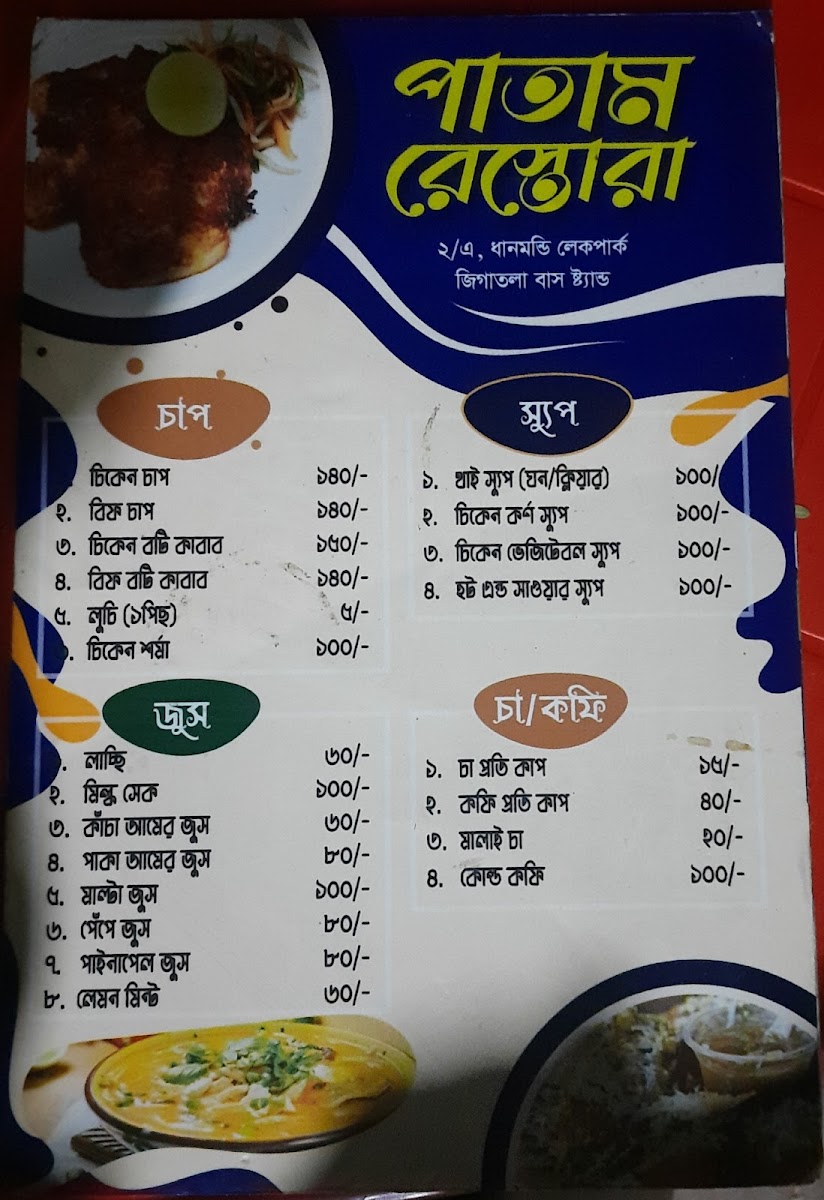 পাতাম
রেস্তোরা
২/এ, ধানমন্ডি লেকপার্ক
জিগাতলা বাস ষ্ট্যান্ড
চাপ
চিকেন চাপ ১৪০/-
২. বিফ চাপ ১৪০/-
৩. চিকেন বটি কাবাব ১৫০/-
৪. বিফ বটি কাবাব ১৪০/-
৫. লুচি (১পিছ) ৫/-
চিকেন শর্মা ১০০/-
স্যুপ
১. থাই স্যুপ (ঘন/ক্লিয়ার) ১০০/
২. চিকেন কর্ণ স্যুপ ১০০/-
৩. চিকেন ভেজিটেবল স্যুপ ১০০/-
৪. হট এন্ড সাওয়ার স্যুপ ১০০/-
জুস
. লাচ্ছি ৬০/-
২. মিল্ক সেক ১০০/-
৩. কাঁচা আমের জুস ৬০/-
৪. পাকা আমের জুস ৮০/-
৫. মাল্টা জুস ১০০/-
৬. পেঁপে জুস ৮০/-
৭. পাইনাপেল জুস ৮০/-
৮. লেমন মিন্ট ৬০/-
চা/কফি
১. চা প্রতি কাপ ১৫/-
২. কফি প্রতি কাপ ৪০/-
৩. মালাই চা ২০/-
৪. কোল্ড কফি ১০০/-